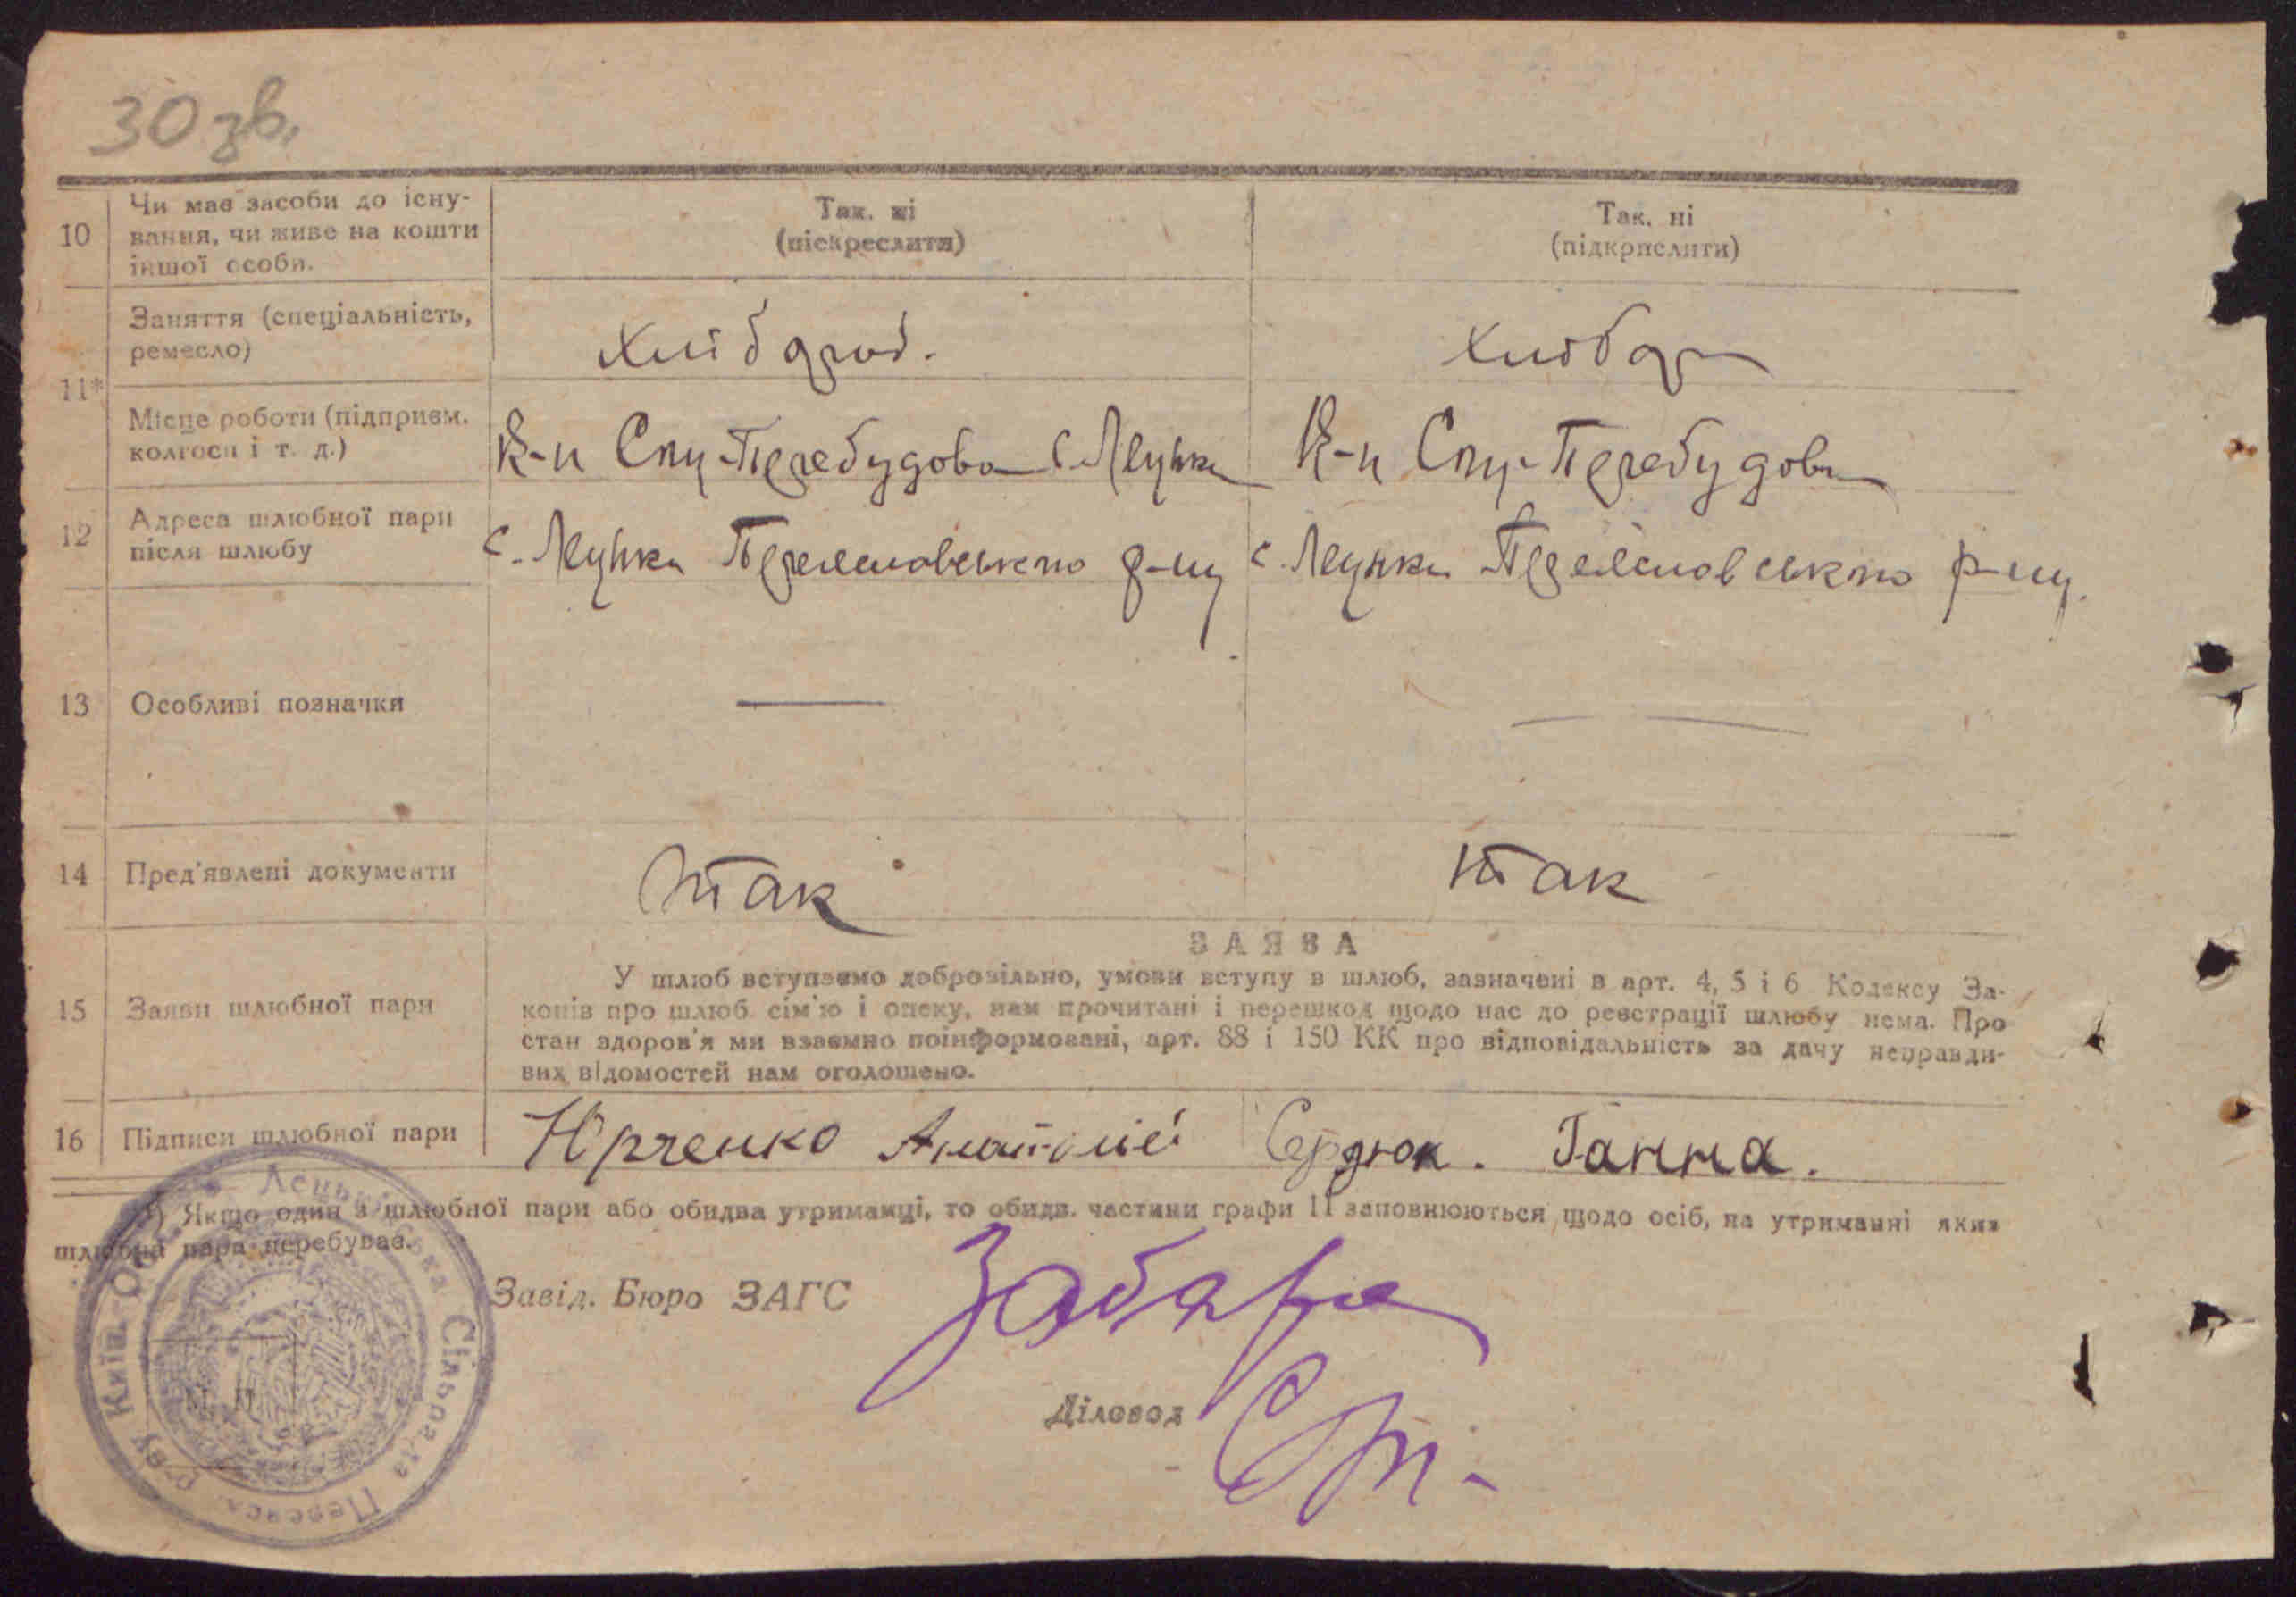 30 зв.
10 Чи має засоби до існу-
вання, чи живе на кошти
іншої особи.
Так. ні
(піскреслити)
Так. ні
(підкрислити)
11*
Заняття (спеціальність,
ремесло)
Хлібороб.
Хлібор
Місце роботи (підприєм.
колгосп і т. д.)
К-п Соц-Перебудова с. Лецьки
К-п Соц-Перебудова
12 Адреса шлюбної пари
після шлюбу
с. Лецьки Переяславського р-ну
с. Лецьки Переяславського р-ну.
13 Особливі позначки
14 Пред'явлені документи
так
так
15 Заяви шлюбної пари
ЗАЯВА
У шлюб вступаємо добровільно, умови вступу в шлюб, зазначені в арт. 4, 5 і 6 Кодексу За-
конів про шлюб сім'ю і опеку, нам прочитані і перешкод щодо нас до реєстрації шлюбу нема. Про
стан здоров'я ми взаємно поінформовані, арт. 88 і 150 КК про відповідальність за дачу неправди-
вих відомостей нам оголошено.
16 Підписи шлюбної пари
Юрченко Анатолій
Сердюк. Ганна.
*) Якщо один з шлюбної пари або обидва утриманці, то обидв. частини графи 11 заповнюються щодо осіб, на утриманні яких
шлюбна пара перебуває.
Завід. Бюро ЗАГС
Забара
Діловод
М. П.
Лецьківська Сільрада Переясл. р-ву Київ. Обл.